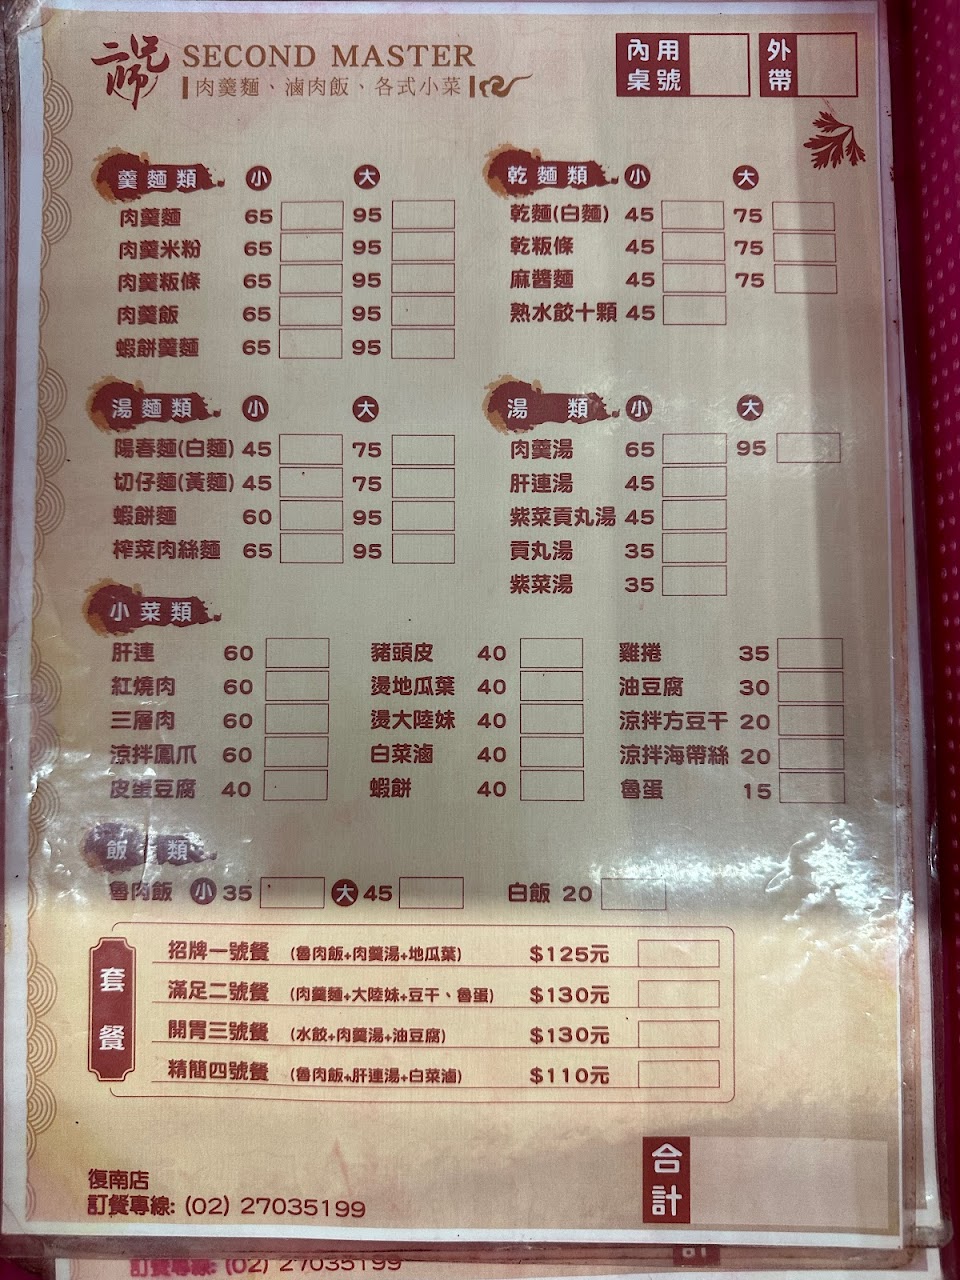 二師兄 SECOND MASTER
肉羹麵、滷肉飯、各式小菜
內用桌號 外帶
羹麵類 小 大
肉羹麵 65 95
肉羹米粉 65 95
肉羹粄條 65 95
肉羹飯 65 95
蝦餅羹麵 65 95
乾麵類 小 大
乾麵(白麵) 45 75
乾粄條 45 75
麻醬麵 45 75
熟水餃十顆 45
湯麵類 小 大
陽春麵(白麵) 45 75
切仔麵(黃麵) 45 75
蝦餅麵 60 95
榨菜肉絲麵 65 95
湯類 小 大
肉羹湯 65 95
肝連湯 45
紫菜貢丸湯 45
貢丸湯 35
紫菜湯 35
小菜類
肝連 60 豬頭皮 40 雞捲 35
紅燒肉 60 燙地瓜葉 40 油豆腐 30
三層肉 60 燙大陸妹 40 涼拌方豆干 20
涼拌鳳爪 60 白菜滷 40 涼拌海帶絲 20
皮蛋豆腐 40 蝦餅 40 魯蛋 15
飯類
魯肉飯 小 35 大 45 白飯 20
套餐
招牌一號餐 (魯肉飯+肉羹湯+地瓜葉) $125元
滿足二號餐 (肉羹麵+大陸妹+豆干、魯蛋) $130元
開胃三號餐 (水餃+肉羹湯+油豆腐) $130元
精簡四號餐 (魯肉飯+肝連湯+白菜滷) $110元
合計
復南店
訂餐專線: (02) 27035199
訂餐專線: (02) 27035199
計